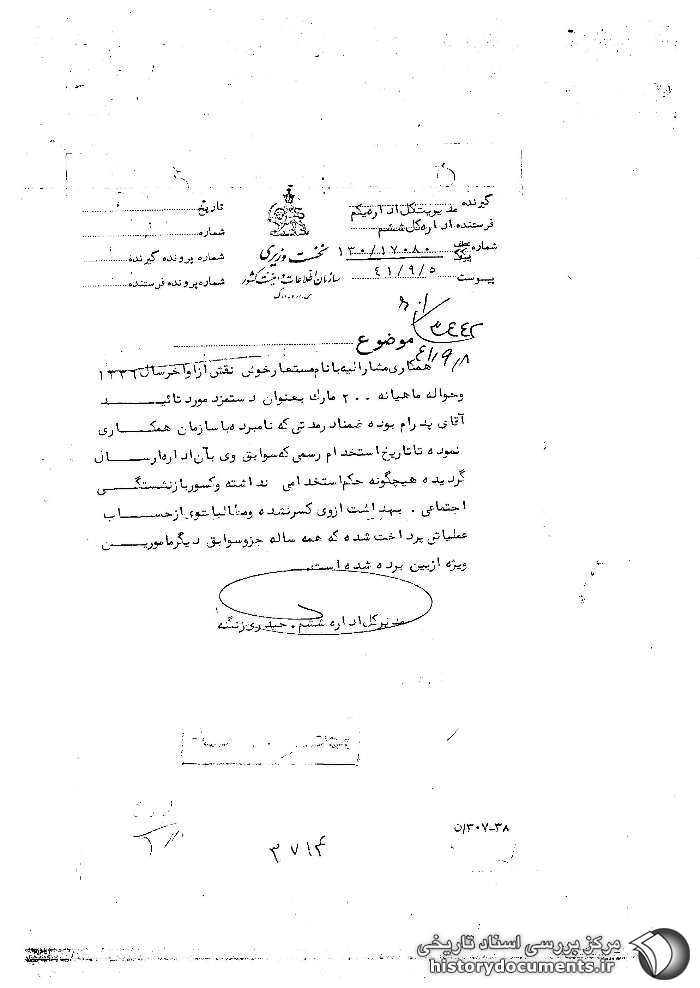 گیرنده مدیریت کل اداره یکم
فرستنده اداره کل ششم
شماره ۱۳۰/۱۷۰۸۰
پیوست ۴۱/۹/۵
نخست وزیری
سازمان اطلاعات و امنیت کشور
تاریخ
شماره
شماره پرونده گیرنده
شماره پرونده فرستنده
۳۴۴۲
۴۱/۹/۸
موضوع
همکاری مشارالیه با نام مستعار خوئی نقش از اواخر سال ۱۳۳۶
وحواله ماهیانه ۲۰۰ مارک بعنوان دستمزد مورد تائید
آقای پدرام بوده ضمنا در مدتی که نامبرده با سازمان همکاری
نموده تا تاریخ استخدام رسمی که سوابق وی بآن اداره ارسال
گردیده هیچگونه حکم استخدامی نداشته و کسور بازنشستگی
اجتماعی . بهداشت از وی کسر نشده و مطالبات وی از حساب
عملیاتی پرداخت شده که همه ساله جزو سوابق دیگر مامورین
ویژه از بین برده شده است.
مدیرکل اداره ششم . حیدری زنگنه
۳۰۷-۳۸/ن
۳۷۱۴
مرکز بررسی اسناد تاریخی
historydocuments.ir